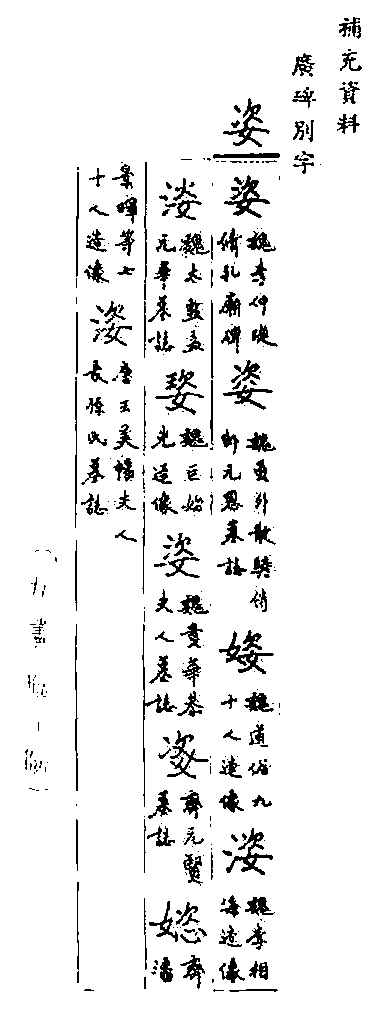 補充資料
廣碑別字
姿
姿 魏李仲琁脩孔廟碑 姿 魏員外散騎侍郎元恩墓誌 姿 魏道俗九十人造像 姿 魏李相海造像
姿 魏太監孟元華墓誌 姿 魏巨始光造像 姿 魏貴華恭夫人墓誌 姿 齊元賢墓誌 恣 齊潘
景暉等七十人造像 姿 唐王美暢夫人長孫氏墓誌
九畫